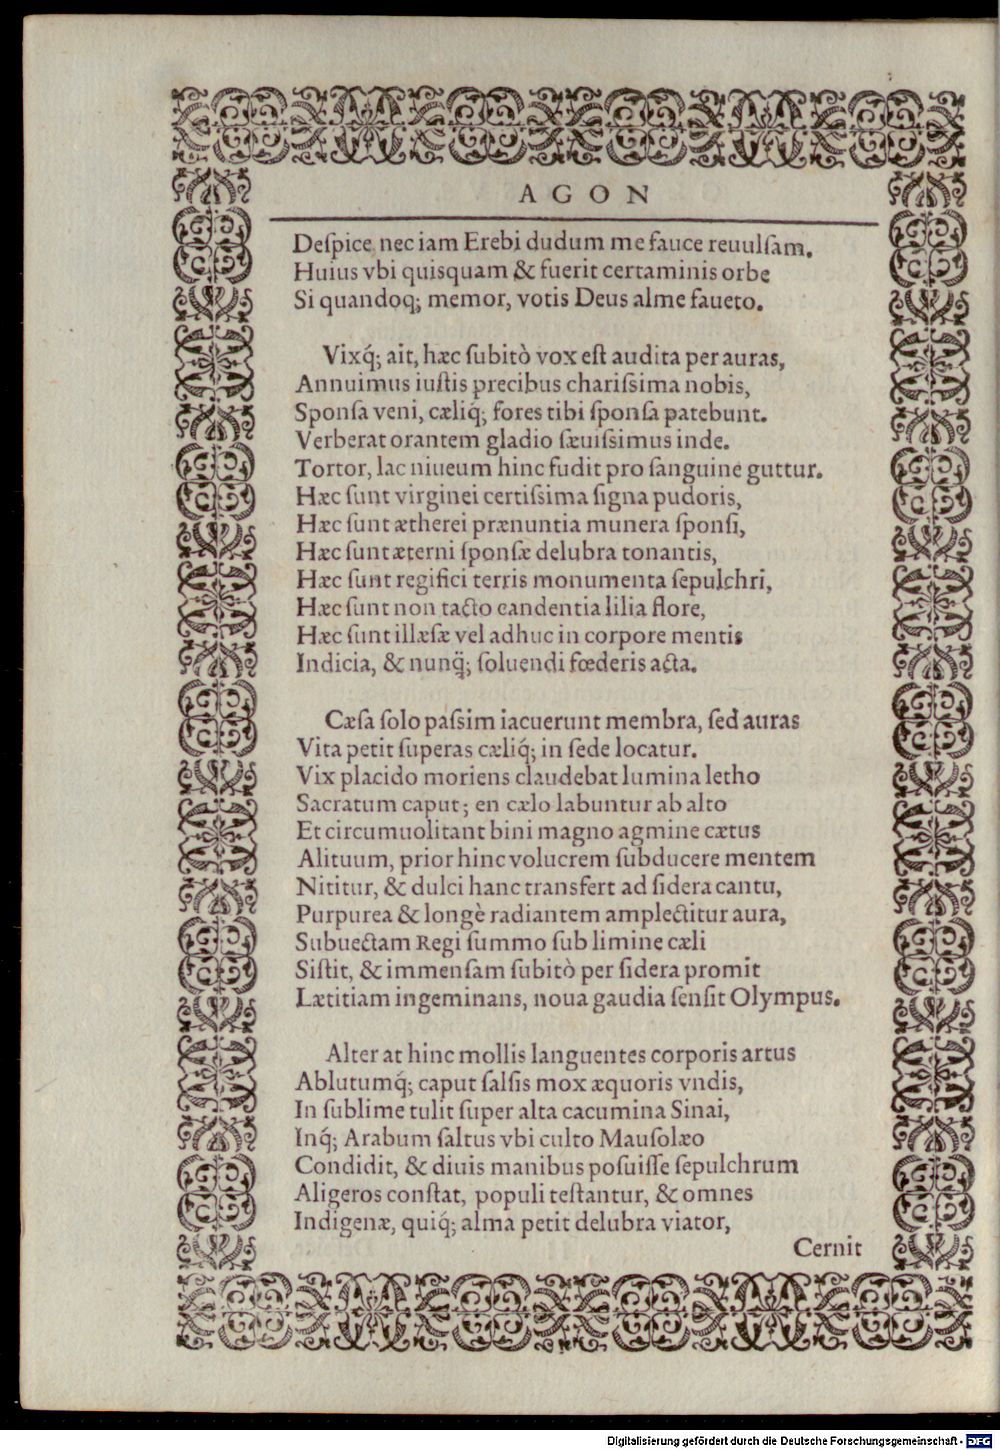 AGON
Deſpice nec iam Erebi dudum me fauce reuulſam.
Huius vbi quisquam & fuerit certaminis orbe
Si quandoq; memor, votis Deus alme faueto.
Vixq́; ait, hæc ſubitò vox eſt audita per auras,
Annuimus iuſtis precibus chariſsima nobis,
Sponſa veni, cæliq́; fores tibi ſponſa patebunt.
Verberat orantem gladio ſæuiſsimus inde.
Tortor, lac niueum hinc fudit pro ſanguine guttur.
Hæc ſunt virginei certiſsima ſigna pudoris,
Hæc ſunt ætherei prænuntia munera ſponſi,
Hæc ſunt æterni ſponſæ delubra tonantis,
Hæc ſunt regifici terris monumenta ſepulchri,
Hæc ſunt non tacto candentia lilia flore,
Hæc ſunt illæſæ vel adhuc in corpore mentis
Indicia, & nunq̈; ſoluendi fœderis acta.
Cæſa ſolo paſsim iacuerunt membra, ſed auras
Vita petit ſuperas cæliq́; in ſede locatur.
Vix placido moriens claudebat lumina letho
Sacratum caput; en cælo labuntur ab alto
Et circumuolitant bini magno agmine cætus
Alituum, prior hinc volucrem ſubducere mentem
Nititur, & dulci hanc transfert ad ſidera cantu,
Purpurea & longè radiantem amplectitur aura,
Subuectam Regi ſummo ſub limine cæli
Siſtit, & immenſam ſubitò per ſidera promit
Lætitiam ingeminans, noua gaudia ſenſit Olympus.
Alter at hinc mollis languentes corporis artus
Ablutumq́; caput ſalſis mox æquoris vndis,
In ſublime tulit ſuper alta cacumina Sinai,
Inq́; Arabum ſaltus vbi culto Mauſolæo
Condidit, & diuis manibus poſuiſſe ſepulchrum
Aligeros conſtat, populi teſtantur, & omnes
Indigenæ, quiq́; alma petit delubra viator,
Cernit
Digitalisierung gefördert durch die Deutsche Forschungsgemeinschaft - DFG